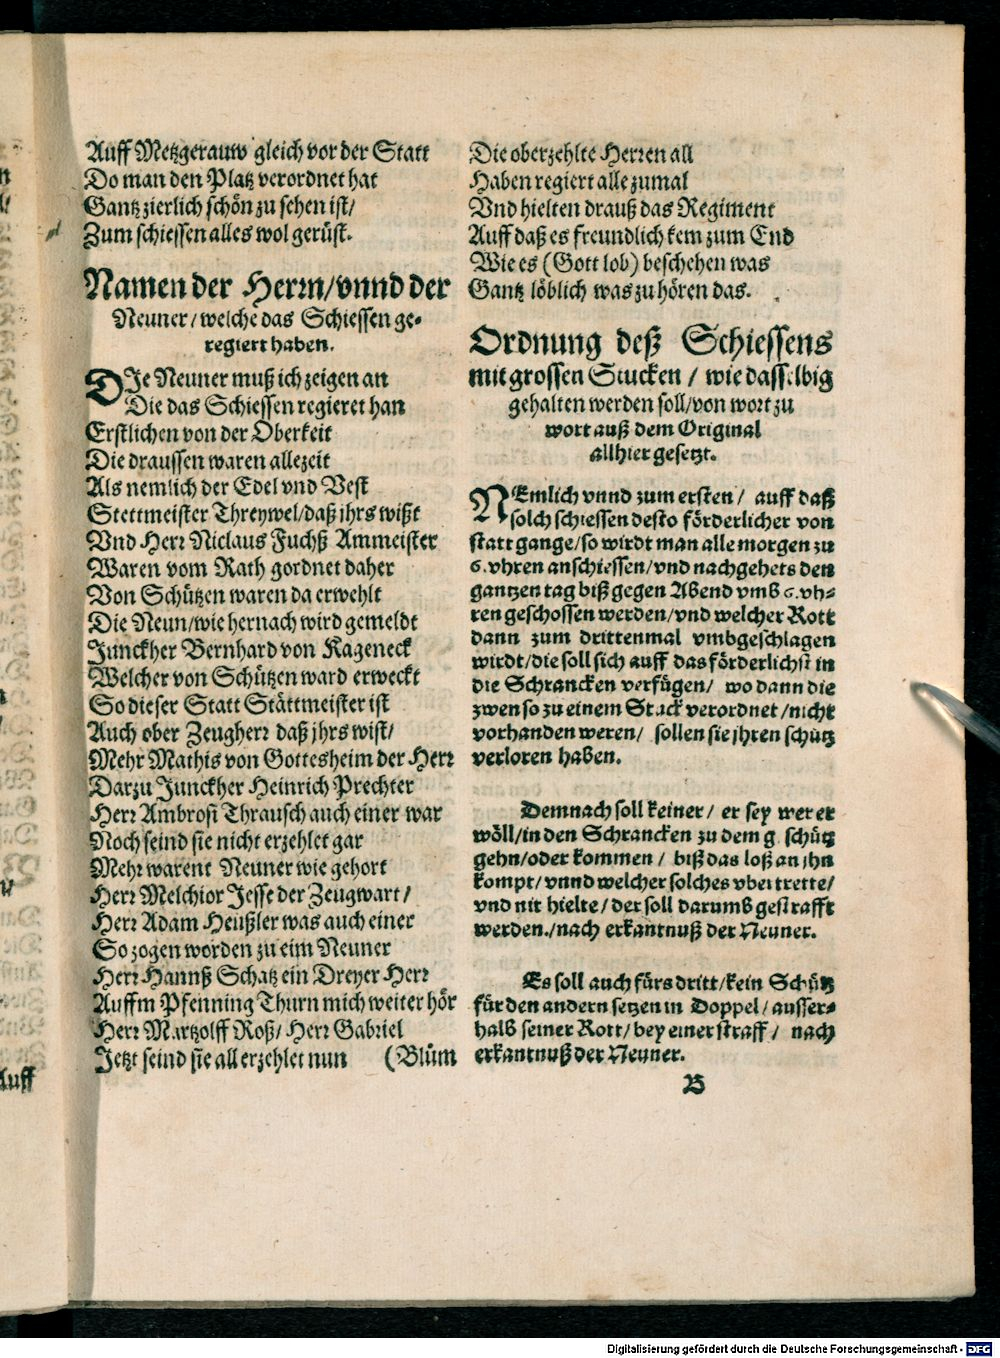 Auff Metzgerauw gleich vor der Statt
Do man den Platz verordnet hat
Gantz zierlich schön zu sehen ist/
Zum schiessen alles wol gerüst.
Namen der Herrn/vnnd der
Neuner/welche das Schiessen ge-
regiert haben.
DIe Neuner muß ich zeigen an
Die das Schiessen regieret han
Erstlichen von der Oberkeit
Die draussen waren allezeit
Als nemlich der Edel vnd Vest
Stettmeister Threywel/daß jhrs wißt
Vnd Herr Niclaus Fuchß Ammeister
Waren vom Rath gordnet daher
Von Schützen waren da erwehlt
Die Neun/wie hernach wird gemeldt
Junckher Bernhard von Kageneck
Welcher von Schützen ward erweckt
So dieser Statt Stättmeister ist
Auch ober Zeugherr daß jhrs wist/
Mehr Mathis von Gottesheim der Herr
Darzu Junckher Heinrich Prechter
Herr Ambrosi Thrausch auch einer war
Noch seind sie nicht erzehlet gar
Mehr warent Neuner wie gehort
Herr Melchior Jesse der Zeugwart/
Herr Adam Heußler was auch einer
So zogen worden zu eim Neuner
Herr Hannß Schatz ein Dreyer Herr
Auffm Pfenning Thurn mich weiter hör
Herr Martzolff Roß/ Herr Gabriel
Jetzt seind sie all erzehlet nun (Blüm
Die oberzehlte Herren all
Haben regiert alle zumal
Vnd hielten drauß das Regiment
Auff daß es freundlich kem zum End
Wie es (Gott lob) beschehen was
Gantz löblich was zu hören das.
Ordnung deß Schiessens
mit grossen Stucken / wie dasselbig
gehalten werden soll/von wort zu
wort auß dem Original
allhier gesetzt.
NEmlich vnnd zum ersten / auff daß
solch schiessen desto förderlicher von
statt gange/so wirdt man alle morgen zu
6. vhren anschiessen/vnd nachgehets den
gantzen tag biß gegen Abend vmb 6. vh-
ren geschossen werden/vnd welcher Rott
dann zum drittenmal vmbgeschlagen
wirdt/die soll sich auff das förderlichst in
die Schrancken verfügen/ wo dann die
zwen so zu einem Stuck verordnet /nicht
vorhanden weren/ sollen sie jhren schütz
verloren haben.
Demnach soll keiner/ er sey wer er
wöll/in den Schrancken zu dem g schütz
gehn/oder kommen / biß das loß an jhn
kompt/vnnd welcher solches vbertrette/
vnd nit hielte/der soll darumb gestrafft
werden./nach erkantnuß der Neuner.
Es soll auch fürs dritt/kein Schütz
für den andern setzen in Doppel/ausser-
halb seiner Rott/bey einer straff / nach
erkantnuß der Neuner.
B
Auff
Digitalisierung gefördert durch die Deutsche Forschungsgemeinschaft - DFG